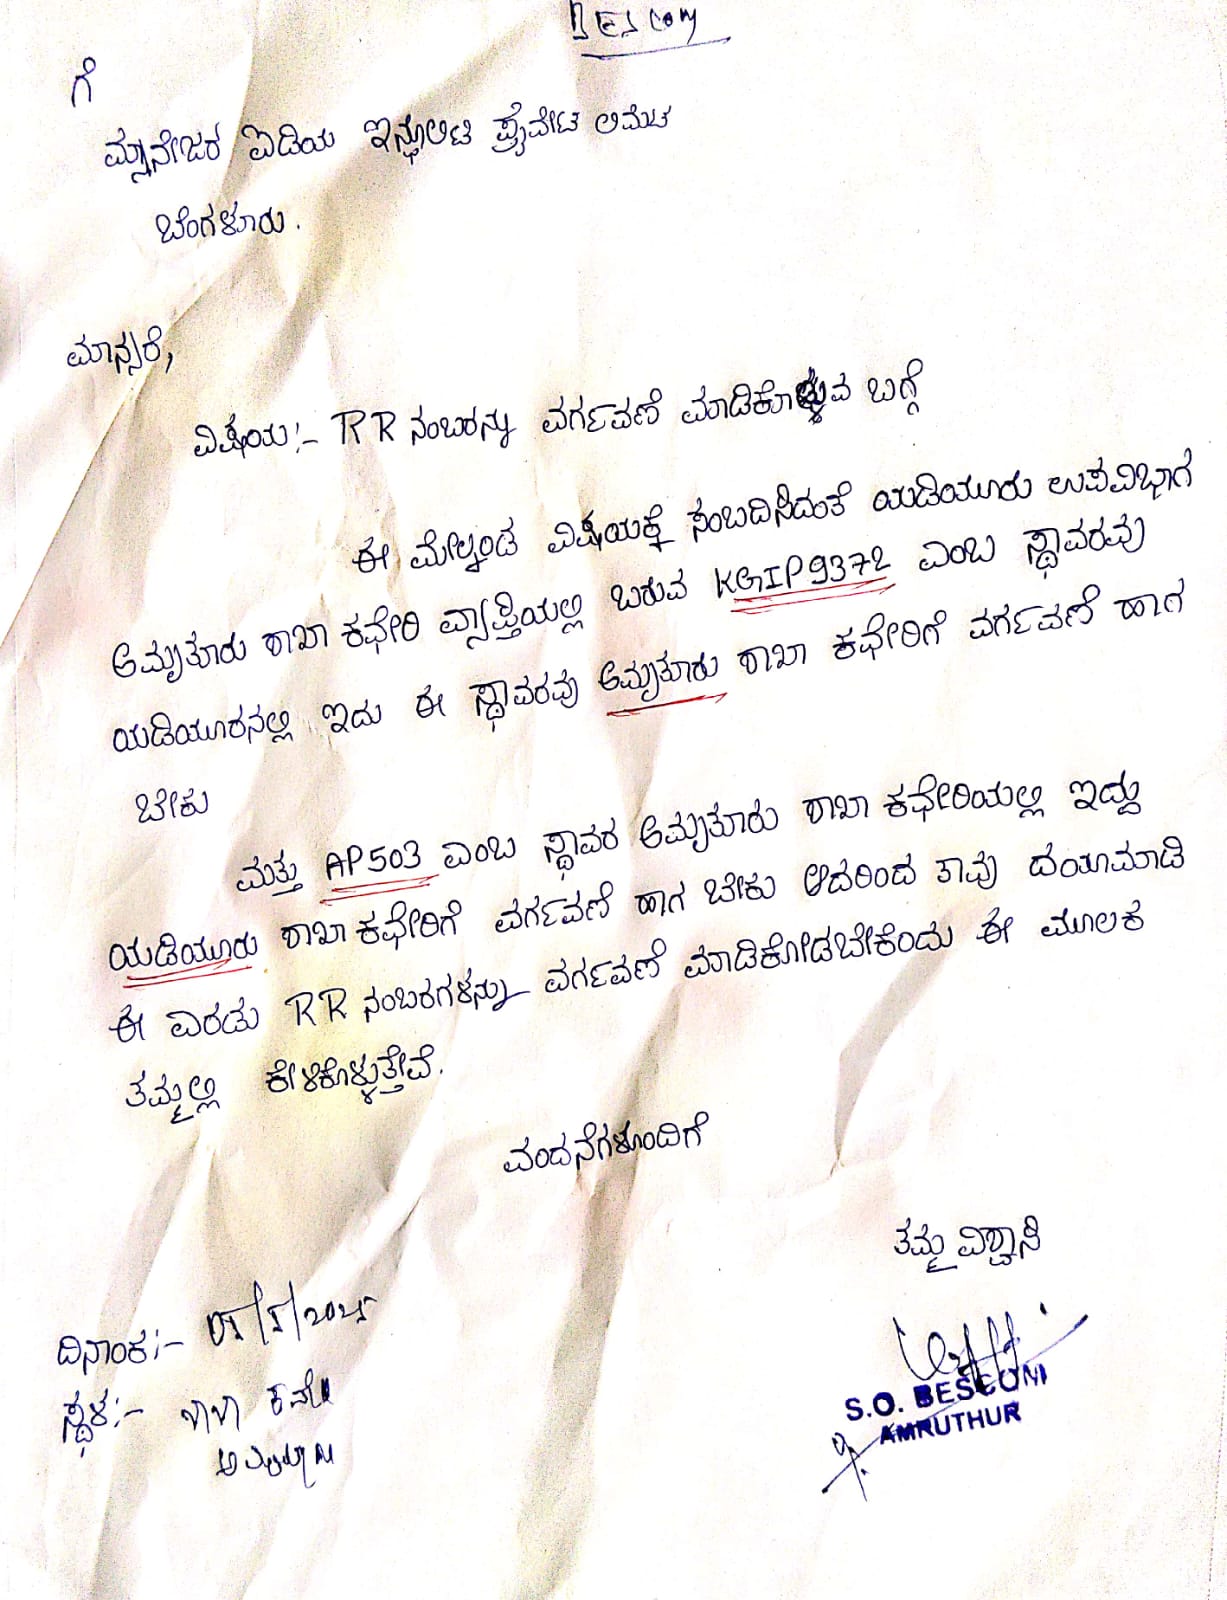 BESCOM
ಗೆ
ಮ್ಯಾನೇಜರ ಐಡಿಯ ಇನ್ಫೊಲಿಟಿ ಪ್ರೈವೇಟ ಲಿಮಿಟ
ಬೆಂಗಳೂರು.
ಮಾನ್ಯರೆ,
ವಿಷಯ:- RR ನಂಬರನ್ನು ವರ್ಗವಣೆ ಮಾಡಿಕೊಳ್ಳುವ ಬಗ್ಗೆ
ಈ ಮೇಲ್ಕಂಡ ವಿಷಯಕ್ಕೆ ಸಂಬದಿಸಿದಂತೆ ಯಡಿಯೂರು ಉಪವಿಭಾಗ
ಅಮೃತೂರು ಶಾಖಾ ಕಛೇರಿ ವ್ಯಾಪ್ತಿಯಲ್ಲಿ ಬರುವ KGIP9372 ಎಂಬ ಸ್ಥಾವರವು
ಯಡಿಯೂರನಲ್ಲಿ ಇದು ಈ ಸ್ಥಾವರವು ಅಮೃತೂರು ಶಾಖಾ ಕಛೇರಿಗೆ ವರ್ಗವಣೆ ಹಾಗ
ಬೇಕು
ಮತ್ತು AP503 ಎಂಬ ಸ್ಥಾವರ ಅಮೃತೂರು ಶಾಖಾ ಕಛೇರಿಯಲ್ಲಿ ಇದ್ದು
ಯಡಿಯೂರು ಶಾಖಾ ಕಛೇರಿಗೆ ವರ್ಗವಣೆ ಹಾಗ ಬೇಕು ಆದರಿಂದ ತಾವು ದಯಾಮಾಡಿ
ಈ ಎರಡು RR ನಂಬರಗಳನ್ನು ವರ್ಗವಣೆ ಮಾಡಿಕೋಡಬೇಕೆಂದು ಈ ಮೂಲಕ
ತಮ್ಮಲ್ಲಿ ಕೇಳಿಕೊಳ್ಳುತ್ತೇವೆ.
ವಂದನೆಗಳೊಂದಿಗೆ
ತಮ್ಮ ವಿಶ್ವಾಸಿ
ದಿನಾಂಕ:-
ಸ್ಥಳ:-
S.O. BESCOM
AMRUTHUR